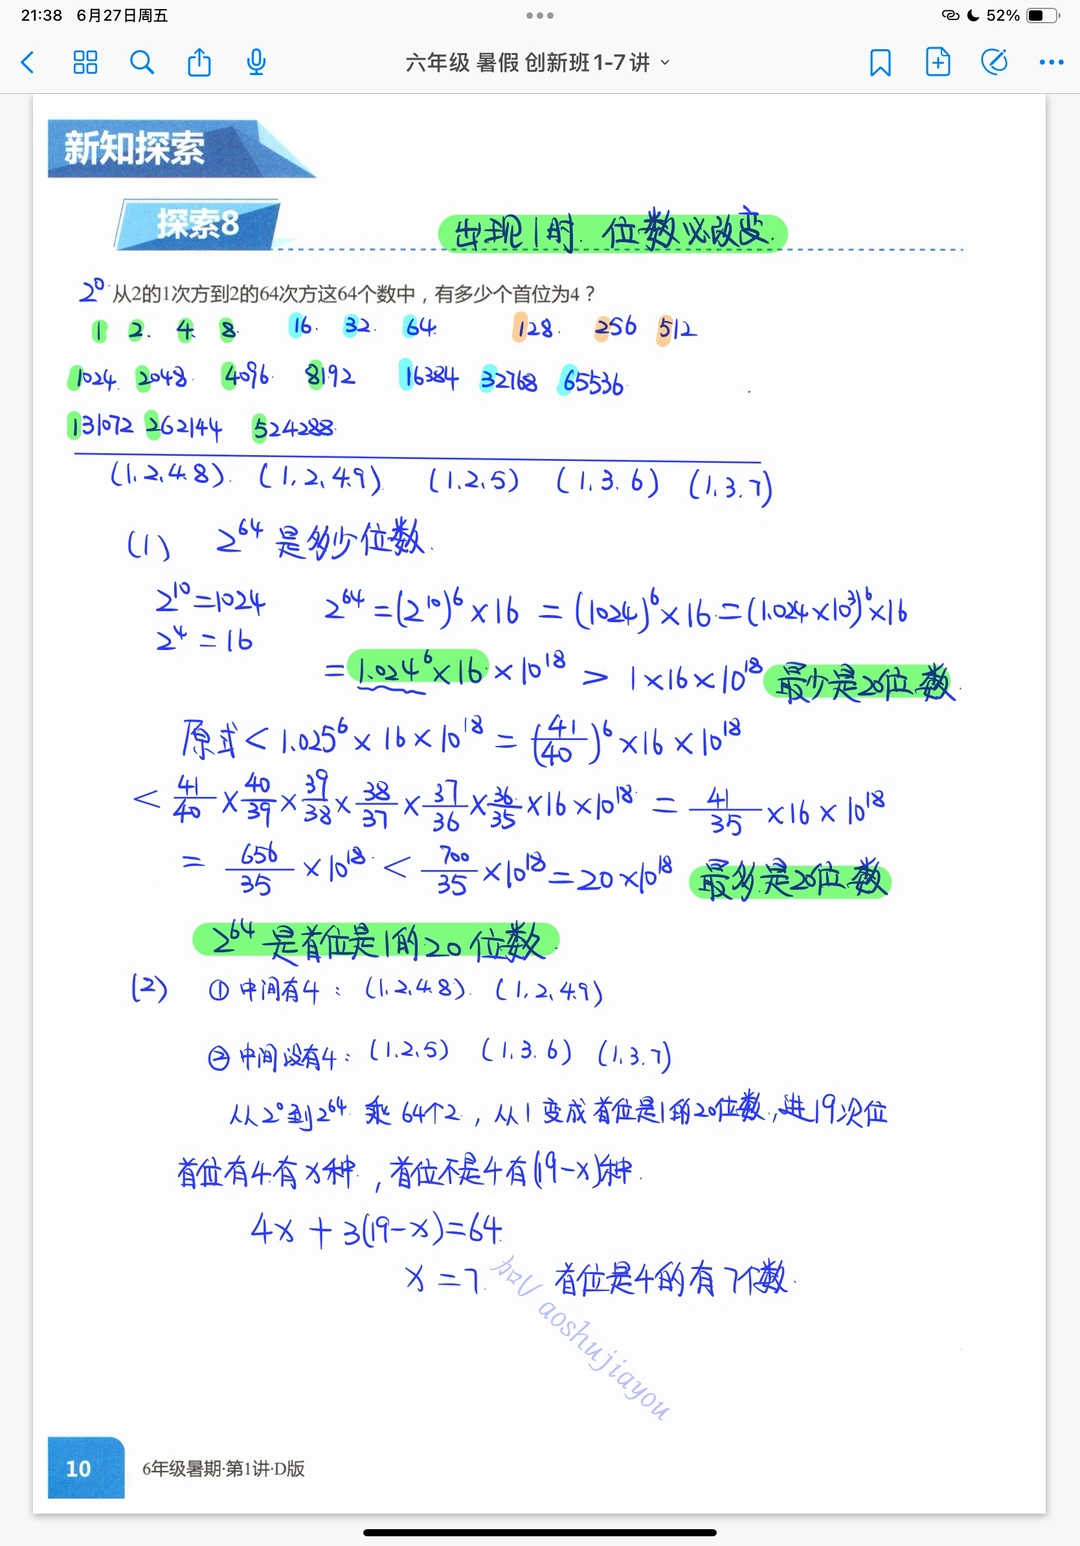 21:38 6月27日周五
52%
六年级 暑假 创新班1-7讲
新知探索
探索8
出现1时. 位数必改变.
2⁰. 从2的1次方到2的64次方这64个数中，有多少个首位为4？
1 2. 4. 8. 16. 32. 64. 128. 256 512
1024. 2048. 4096. 8192 16384 32768 65536.
131072 262144 524288.
(1.2.4.8). (1,2,4.9) (1.2.5) (1.3.6) (1.3.7)
(1) 2⁶⁴ 是多少位数.
2¹⁰=1024 2⁶⁴=(2¹⁰)⁶×16 =(1024)⁶×16=(1.024×10³)⁶×16
2⁴=16
=1.024⁶×16×10¹⁸ > 1×16×10¹⁸ 最少是20位数.
原式<1.025⁶×16×10¹⁸=(41/40)⁶×16×10¹⁸
<41/40×40/39×39/38×38/37×37/36×36/35×16×10¹⁸=41/35×16×10¹⁸
=656/35×10¹⁸<700/35×10¹⁸=20×10¹⁸ 最多是20位数
2⁶⁴是首位是1的20位数.
(2) ①中间有4: (1.2.4.8). (1,2,4.9)
②中间没有4: (1.2.5) (1.3.6) (1.3.7)
从2⁰到2⁶⁴ 乘64个2, 从1变成首位是1的20位数, 进19次位
首位有4有x种, 首位不是4有(19-x)种.
4x+3(19-x)=64.
x=7. 首位是4的有7个数.
加V aoshujiayou
10 6年级暑期·第1讲·D版